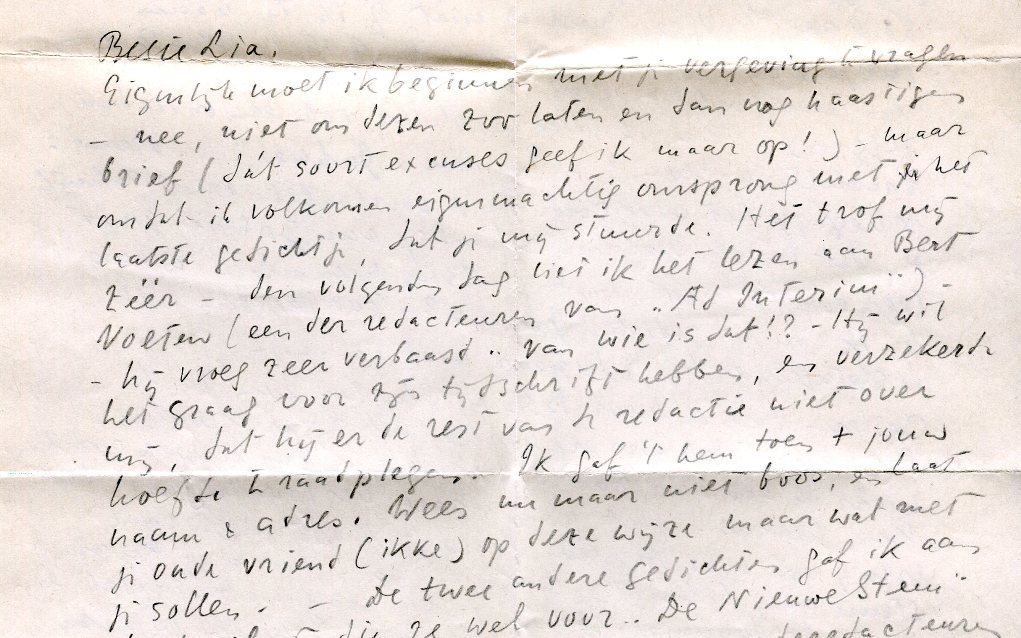 Beste Lia.
Eigenlijk moet ik beginnen met je vergeving te vragen
– nee, niet om dezen zoo laten en dan nog haastigen
brief (dát soort excuses geef ik maar op!) – maar
omdat ik volkomen eigenmachtig omsprong met het
laatste gedichtje, dat je mij stuurde. Het trof mij
zéér – den volgenden dag liet ik het lezen aan Bert
Voeten (een der redacteuren van „Ad Interim") –
– hij vroeg zeer verbaasd „van wie is dat!? – Hij wil
het graag voor zijn tijdschrift hebben, en verzekerde
mij, dat hij er de rest van de redactie niet over
hoefde te raadplegen. Ik gaf 't hem toen + jouw
naam & adres. Wees nu maar niet boos, en laat
je oude vriend (ikke) op deze wijze maar wat met
je sollen. – De twee andere gedichten gaf ik aan
die ze wel voor „De Nieuwe Stem"
redacteuren